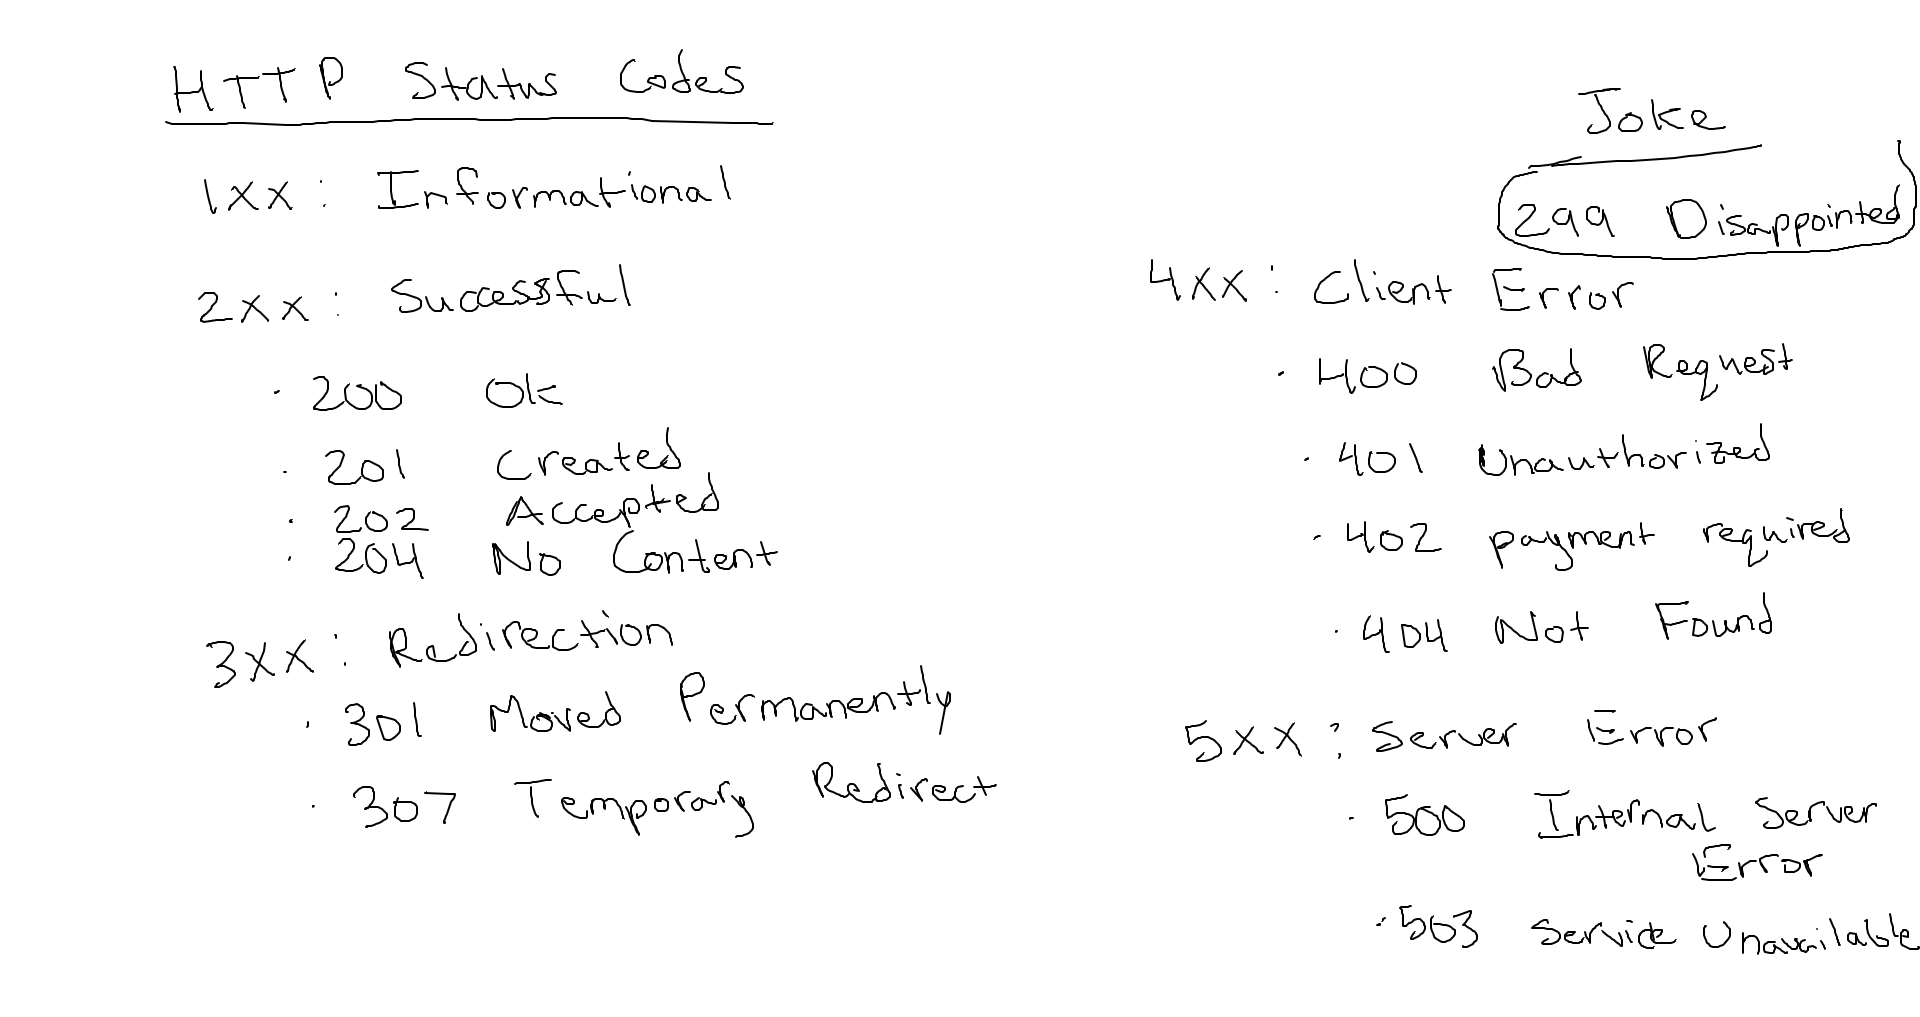 HTTP Status Codes
1XX: Informational
2XX: Successful
· 200 Ok
· 201 Created
· 202 Accepted
· 204 No Content
3XX: Redirection
· 301 Moved Permanently
· 307 Temporary Redirect
Joke
299 Disappointed
4XX: Client Error
· 400 Bad Request
· 401 Unauthorized
· 402 payment required
· 404 Not Found
5XX: Server Error
· 500 Internal Server
Error
· 503 Service Unavailable